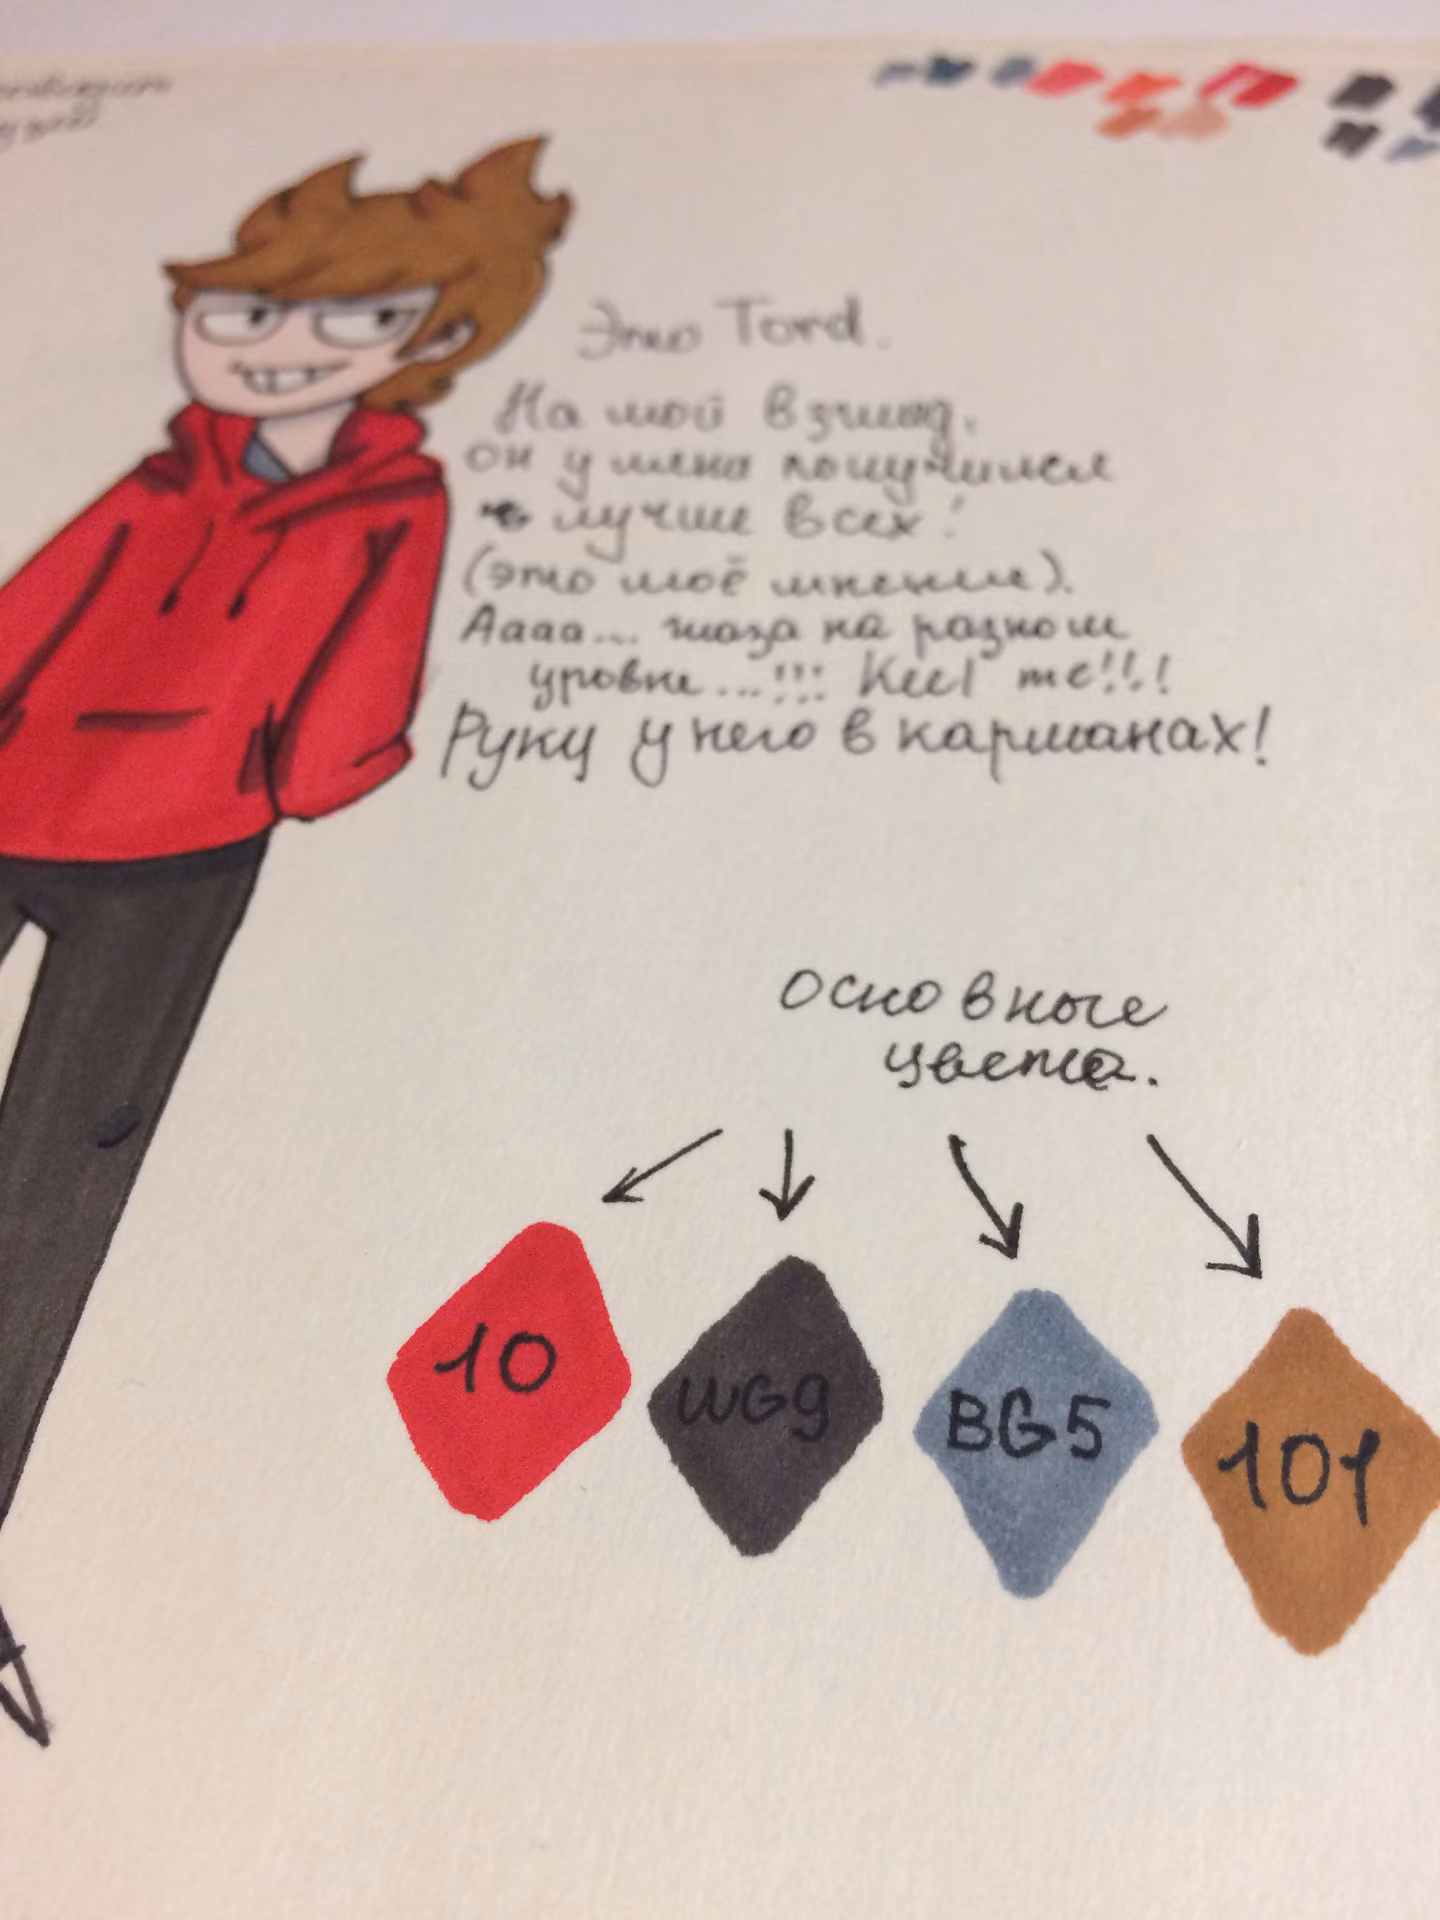 Это Tord.
На мой взгляд,
он у меня получился
лучше всех!
(это моё мнение).
Аааа... глаза на разном
уровне...!!! Kill me!!!!
Руки у него в карманах!
основные
цвета.
10
WG9
BG5
101